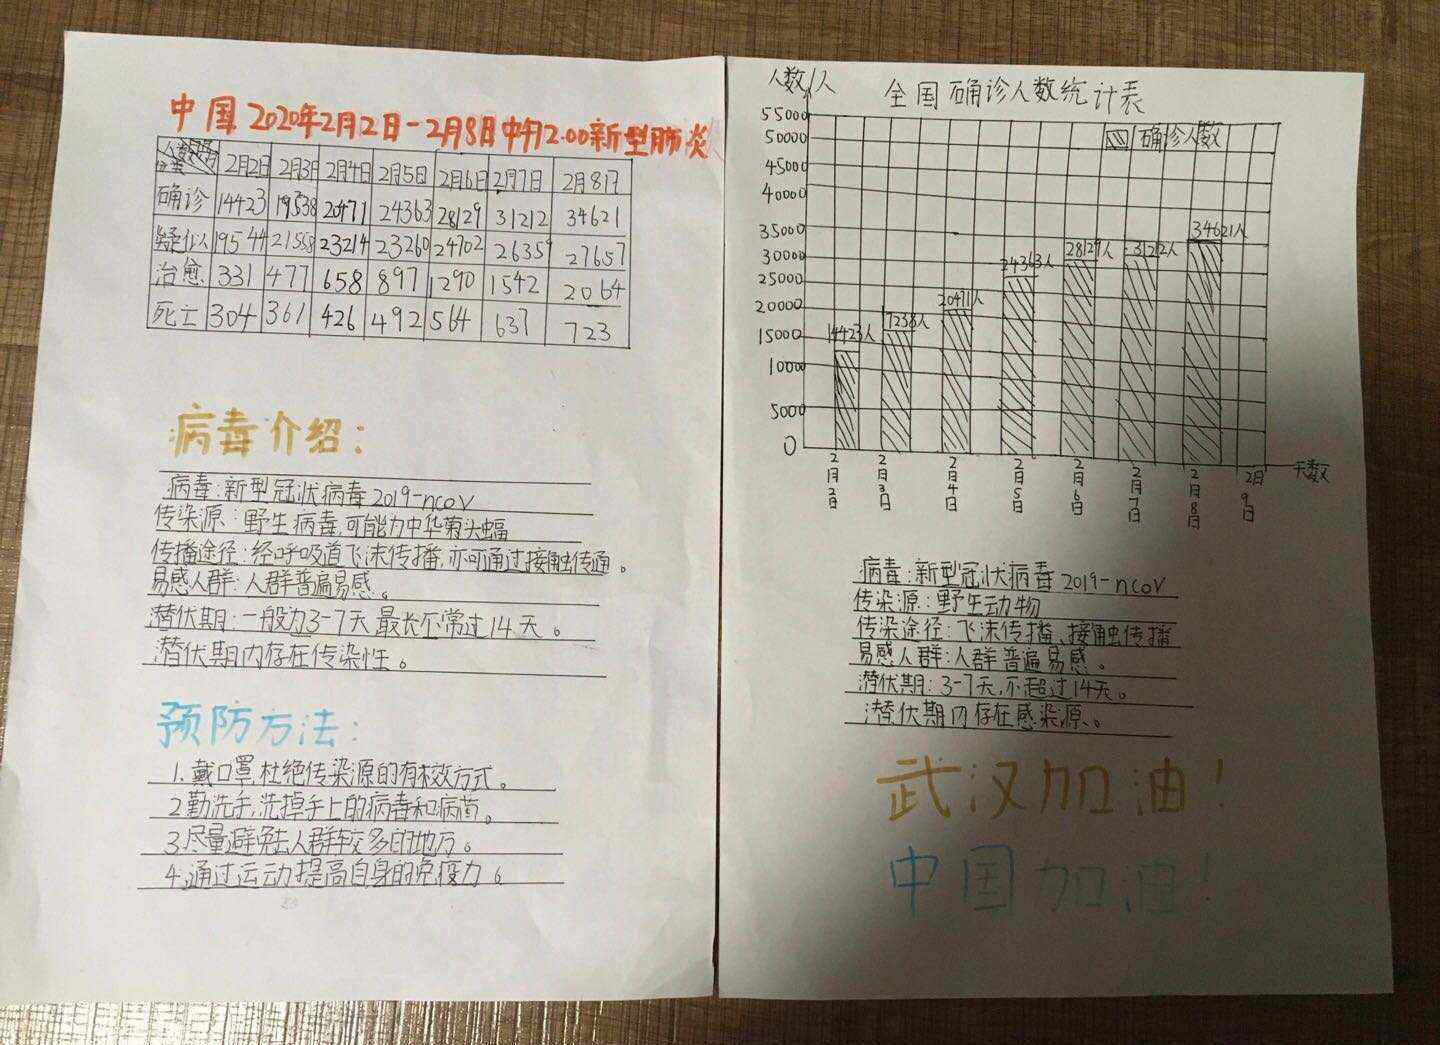 中国2020年2月2日-2月8日中午12.00新型肺炎
2月2日 2月3日 2月4日 2月5日 2月6日 2月7日 2月8日
确诊 14423 19538 20471 24363 28129 31212 34621
疑似人 19544 21558 23214 23260 24702 26359 27657
治愈 331 477 658 897 1290 1542 2064
死亡 304 361 426 492 564 637 723
病毒介绍:
病毒:新型冠状病毒2019-ncov
传染源:野生病毒,可能为中华菊头蝠
传播途径:经呼吸道飞沫传播,亦可通过接触传通。
易感人群:人群普遍易感。
潜伏期:一般为3-7天最长不常过14天。
潜伏期内存在传染性。
预防方法:
1.戴口罩杜绝传染源的有效方式。
2勤洗手,洗掉手上的病毒和病菌。
3.尽量避免去人群较多的地方。
4.通过运动提高自身的免疫力。
人数/人
全国确诊人数统计表
确诊人数
55000
50000
45000
40000
35000
30000
25000
20000
15000
10000
5000
0
14423人 7238人 20471人 24363人 28129人 31212人 34621人
2月2日 2月3日 2月4日 2月5日 2月6日 2月7日 2月8日 2月9日 天数
病毒:新型冠状病毒2019-ncov
传染源:野生动物
传染途径:飞沫传播、接触传播
易感人群:人群普遍易感。
潜伏期:3-7天,不超过14天。
潜伏期内存在感染源、。
武汉加油!
中国加油!